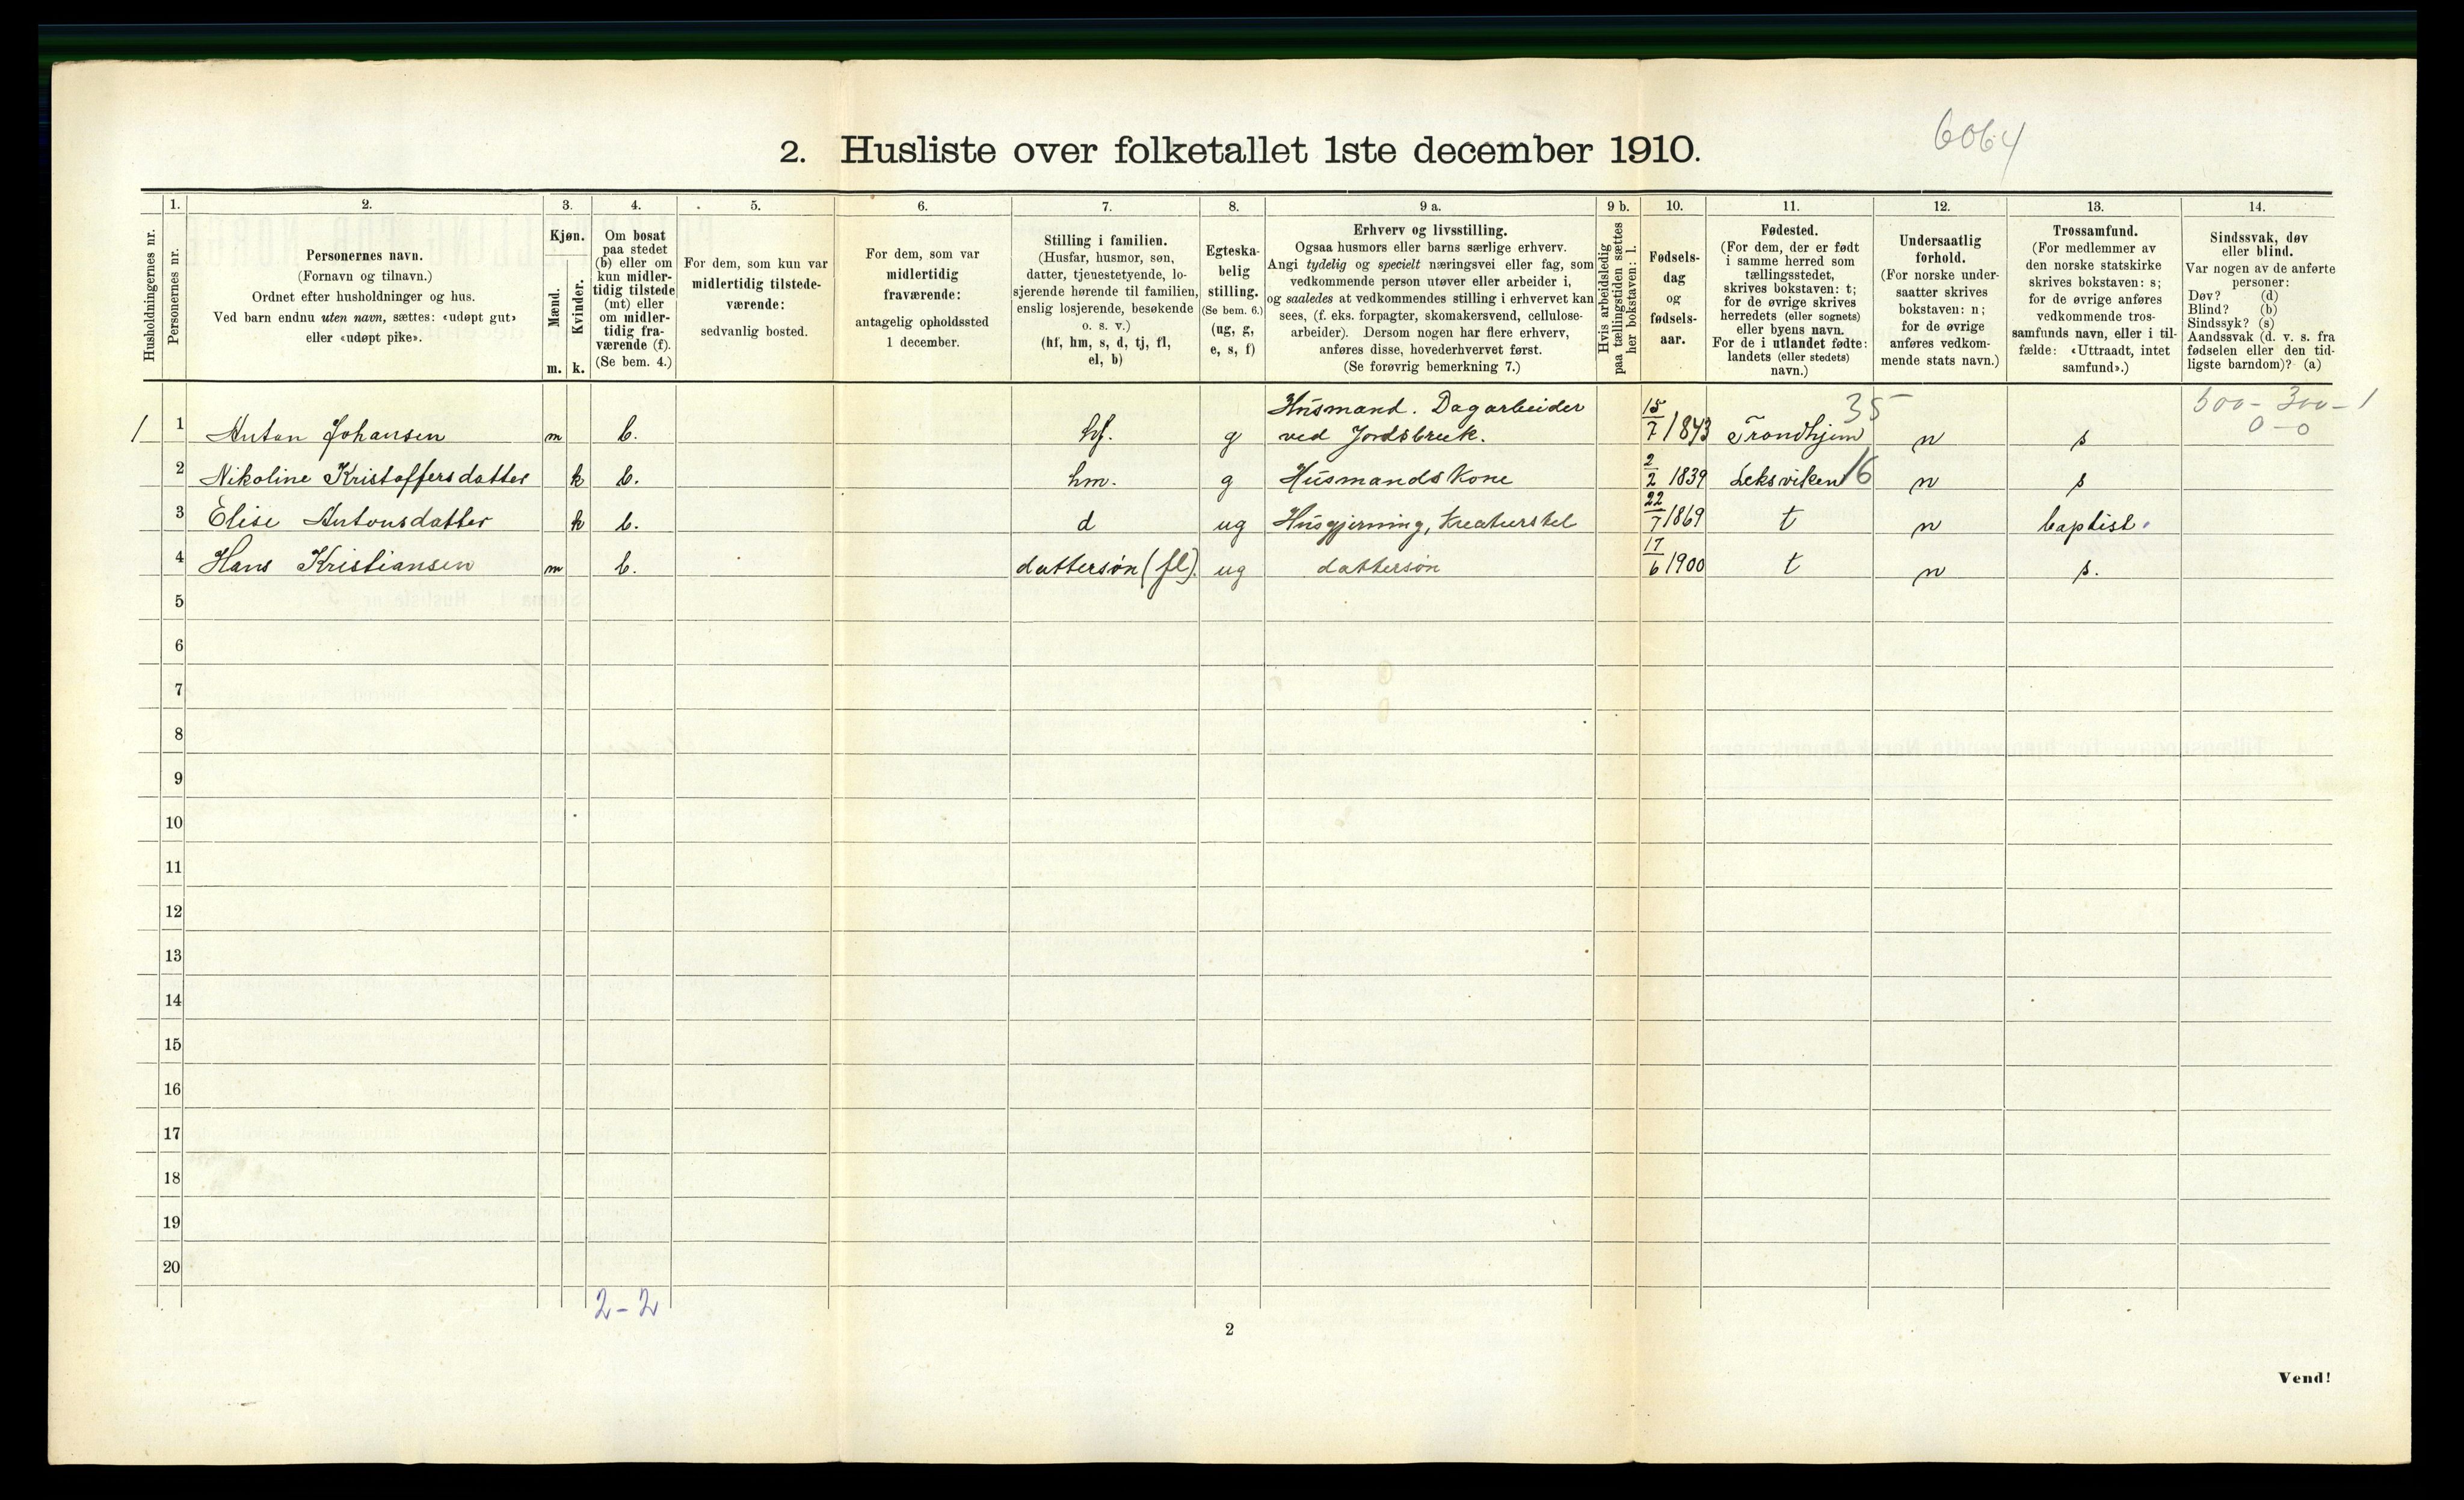 6064
2. Husliste over folketallet 1ste december 1910.
Husholdningernes nr.
1.
Personernes nr.
2.
Personernes navn.
(Fornavn og tilnavn.)
Ordnet efter husholdninger og hus.
Ved barn endnu uten navn, sættes: «udøpt gut»
eller «udøpt pike».
3.
Kjøn.
Mænd.
Kvinder.
m. k.
4.
Om bosat
paa stedet
(b) eller om
kun midler-
tidig tilstede
(mt) eller
om midler-
tidig fra-
værende (f).
(Se bem. 4.)
5.
For dem, som kun var
midlertidig tilstede-
værende:
sedvanlig bosted.
6.
For dem, som var
midlertidig
fraværende:
antagelig opholdssted
1 december.
7.
Stilling i familien.
(Husfar, husmor, søn,
datter, tjenestetyende, lo-
sjerende hørende til familien,
enslig losjerende, besøkende
o. s. v.)
(hf, hm, s, d, tj, fl,
el, b)
8.
Egteska-
belig
stilling.
(Se bem. 6.)
(ug, g,
e, s, f)
9 a.
Erhverv og livsstilling.
Ogsaa husmors eller barns særlige erhverv.
Angi tydelig og specielt næringsvei eller fag, som
vedkommende person utøver eller arbeider i,
og saaledes at vedkommendes stilling i erhvervet kan
sees, (f. eks. forpagter, skomakersvend, cellulose-
arbeider). Dersom nogen har flere erhverv,
anføres disse, hovederhvervet først.
(Se forøvrig bemerkning 7.)
9 b.
Hvis arbeidsledig
paa tællingstiden sættes
her bokstaven: l.
10.
Fødsels-
dag
og
fødsels-
aar.
11.
Fødested.
(For dem, der er født
i samme herred som
tællingsstedet,
skrives bokstaven: t;
for de øvrige skrives
herredets (eller sognets)
eller byens navn.
For de i utlandet fødte:
landets (eller stedets)
navn.)
12.
Undersaatlig
forhold.
(For norske under-
saatter skrives
bokstaven: n;
for de øvrige
anføres vedkom-
mende stats navn.)
13.
Trossamfund.
(For medlemmer av
den norske statskirke
skrives bokstaven: s;
for de øvrige anføres
vedkommende tros-
samfunds navn, eller i til-
fælde: «Uttraadt, intet
samfund».)
14.
Sindssvak, døv
eller blind.
Var nogen av de anførte
personer:
Døv? (d)
Blind? (b)
Sindssyk? (s)
Aandssvak (d. v. s. fra
fødselen eller den tid-
ligste barndom)? (a)
Husmand. Dagarbeider 35 500-300-1
1 1 Anton Johansen m b. hf. g ved Jordsbruk. 15/7 1843 Trondhjem n s 0-0
2 Nikoline Kristoffersdatter k b. hm. g Husmandskone 2/2 1839 Leksviken 16 n s
3 Elise Antonsdatter k b. d ug Husgjerning, Kreaturstel 22/7 1869 t n baptist.
4 Hans Kristiansen m b. dattersøn (fl). ug dattersøn 17/6 1900 t n s.
5
6
7
8
9
10
11
12
13
14
15
16
17
18
19
20
2-2
2
Vend!